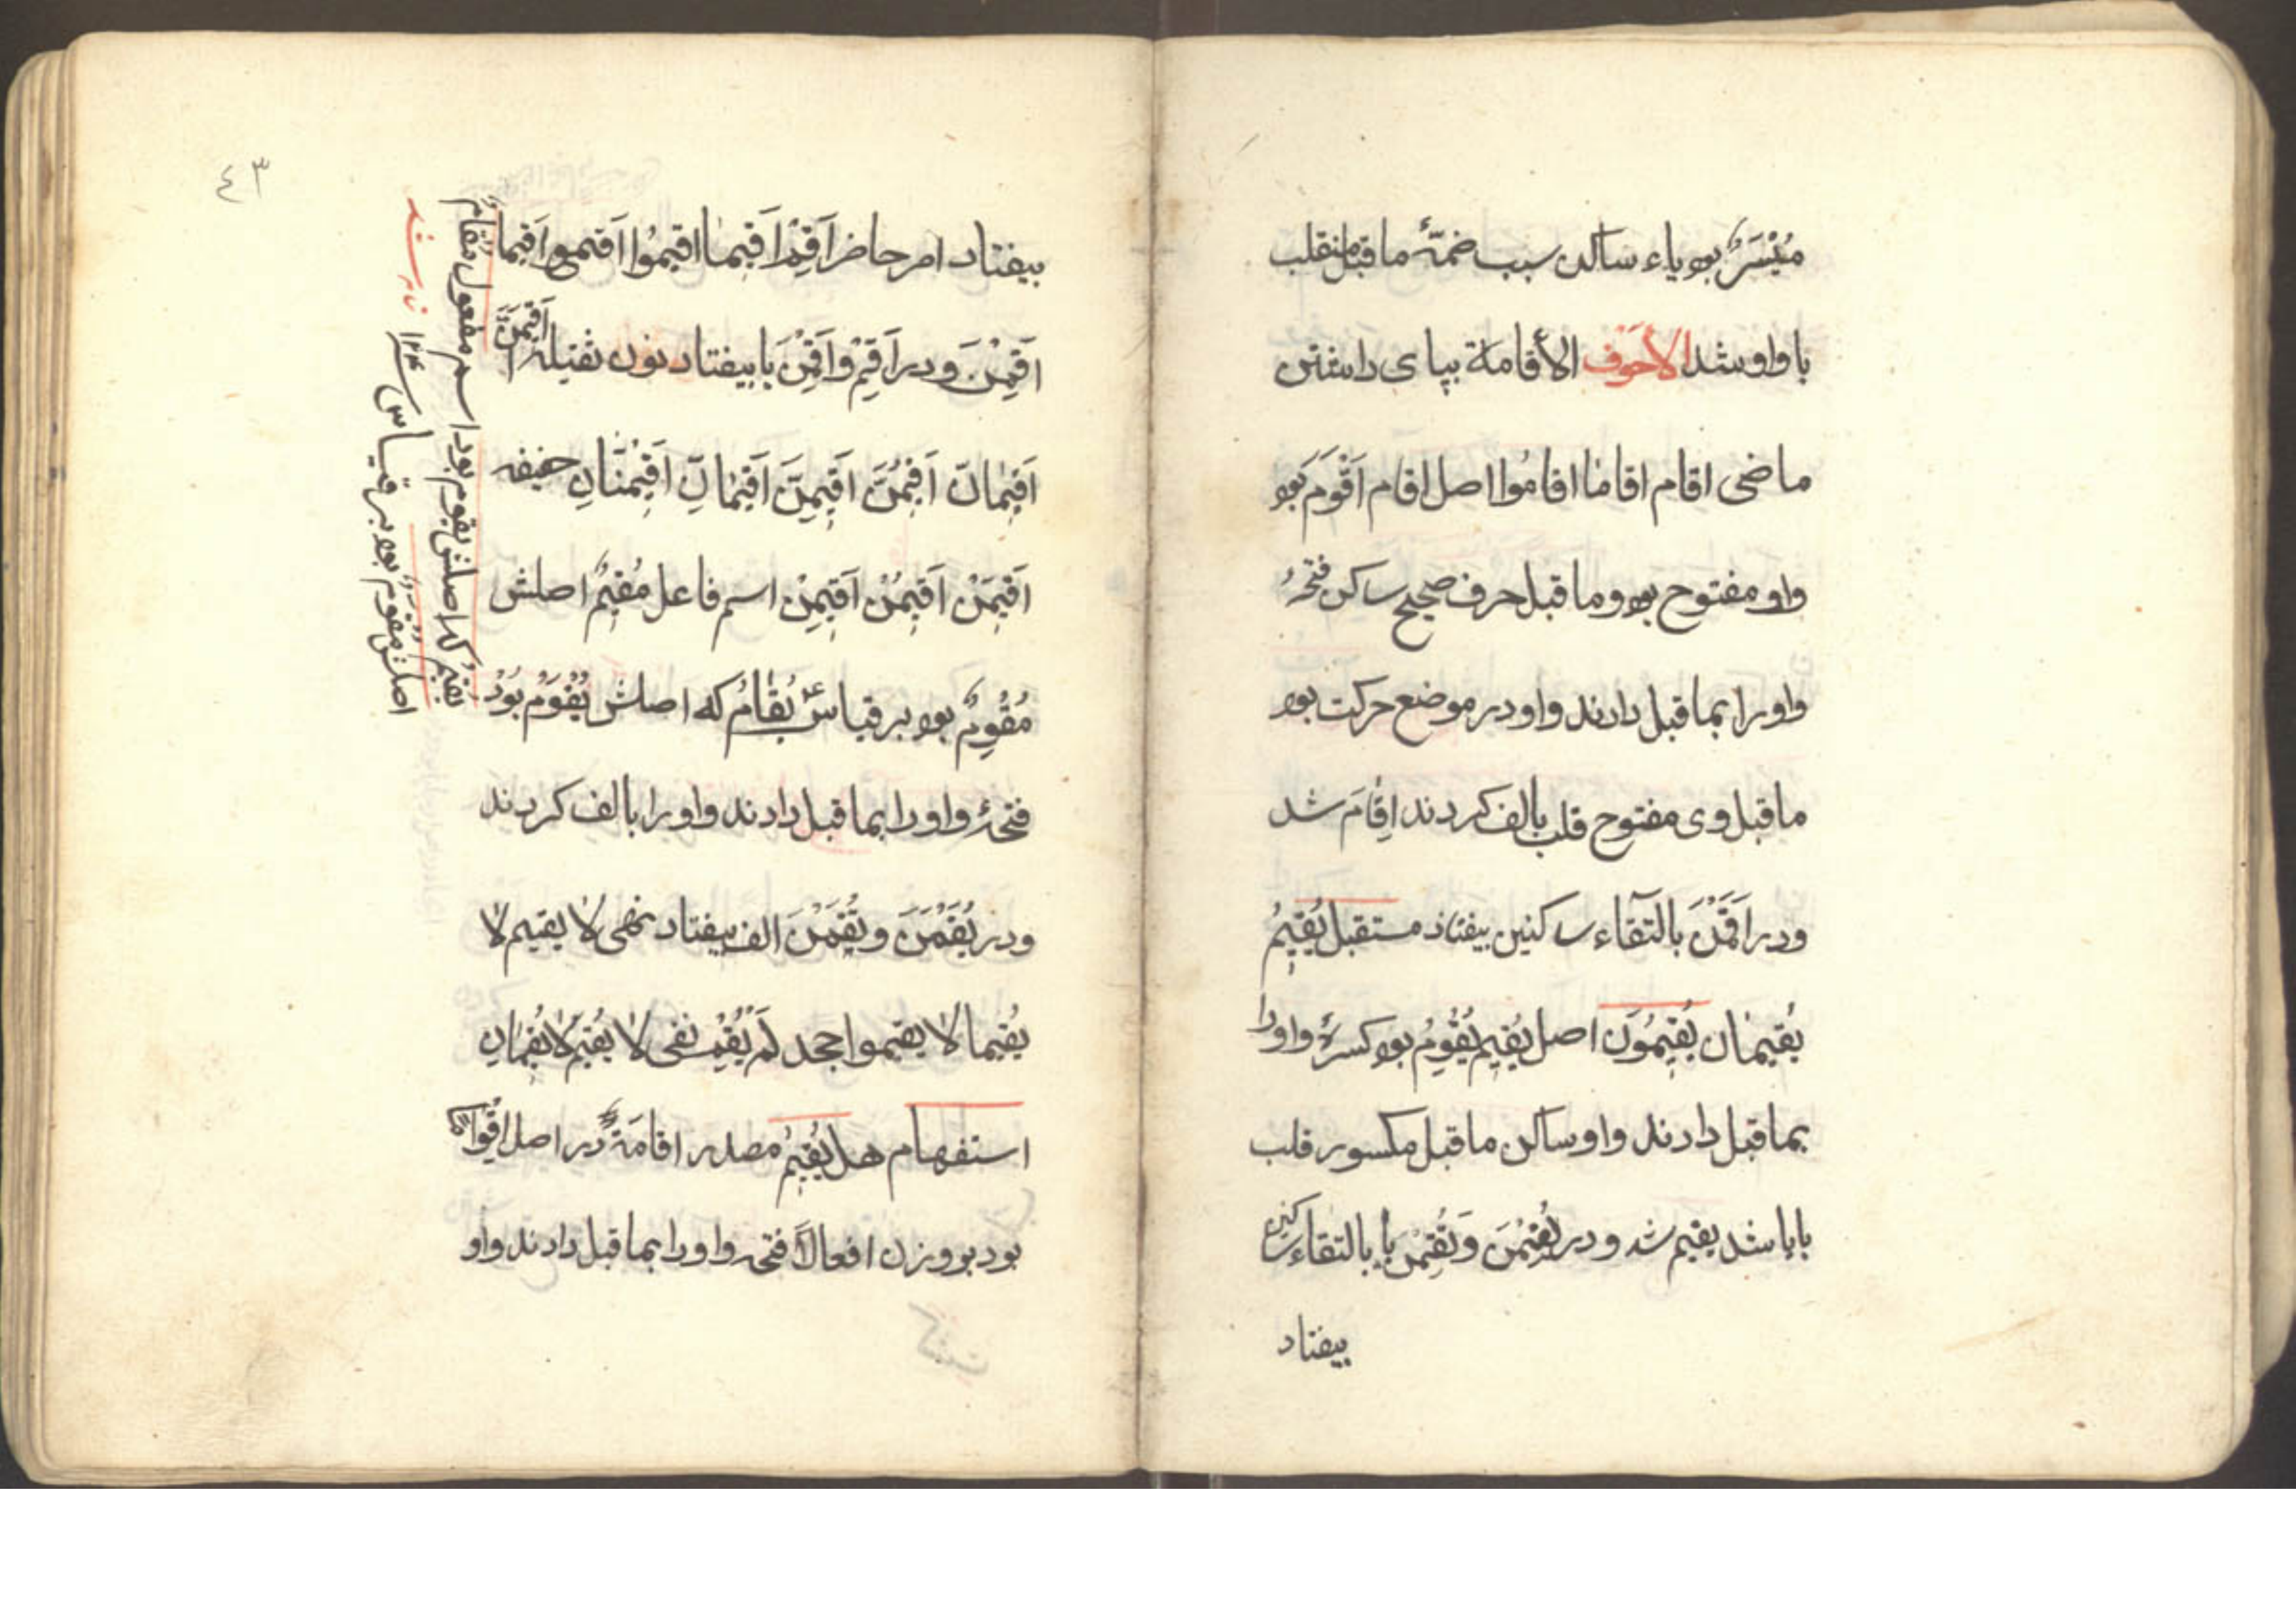 مُیْسَرٌ بود یاء ساکن سبب ضمّهٔ ما قبل منقلب
با واو شد الاجوف الاقامة بپای داشتن
ماضی اقام اقاما اقاموا اصل اقام اَقْوَمَ بود
واو مفتوح بود و ما قبل حرف صحیح ساکن فتحهٔ
واو را بما قبل دادند واو در موضع حرکت بود
ما قبل وی مفتوح قلب بالف کردند اَقامَ شد
و در اَقَمْنَ بالتقاء ساکنین بیفتاد مستقبل یُقیمُ
یُقیمان یُقیمُونَ اصل یُقیم یُقْوِمُ بود کسرهٔ واو را
بما قبل دادند واو ساکن ما قبل مکسور قلب
بایا شد یقیم شد و در یُقِمْنَ وَتُقِمْنَ یا بالتقاء ساکنین
بیفتاد
٤٣
بیفتاد امر حاضر اَقِمْ اَقیما اقیمُوا اَقیمی اَقیما
اَقِمْنَ و در اَقِمْ و اَقِمْنَ یا بیفتاد نون ثقیله اَقیمَنَّ
اَقیمانّ اَقیمُنَّ اَقیمِنَّ اَقیمانِّ اَقِمْنانِّ خفیفه
اَقیمَنْ اَقیمُنْ اَقیمِنْ اسم فاعل مُقیمٌ اصلش
مُقْوِمٌ بود بر قیاس یُقامُ که اصلش یُقْوَمُ بُوَدْ
فتحهٔ واو را بما قبل دادند واو را بالف کردند
و در یُقَمْنَ و تُقَمْنَ الف بیفتاد نهی لا یقیم لا
یُقیما لا یقیموا جحد لَمْ یُقِمْ نفی لا یُقیمُ لا یُقیمانِ
استفهام هل یُقیمُ مصدر اقامَةً در اصل اِقْواماً
بود بر وزن افعالاً فتحه واو را بما قبل دادند واو
مُقامٌ
اسم مفعول بود اصلش یقوم
یُقیمُ که
بر قیاس
اصلش مُقْوَمٌ بود